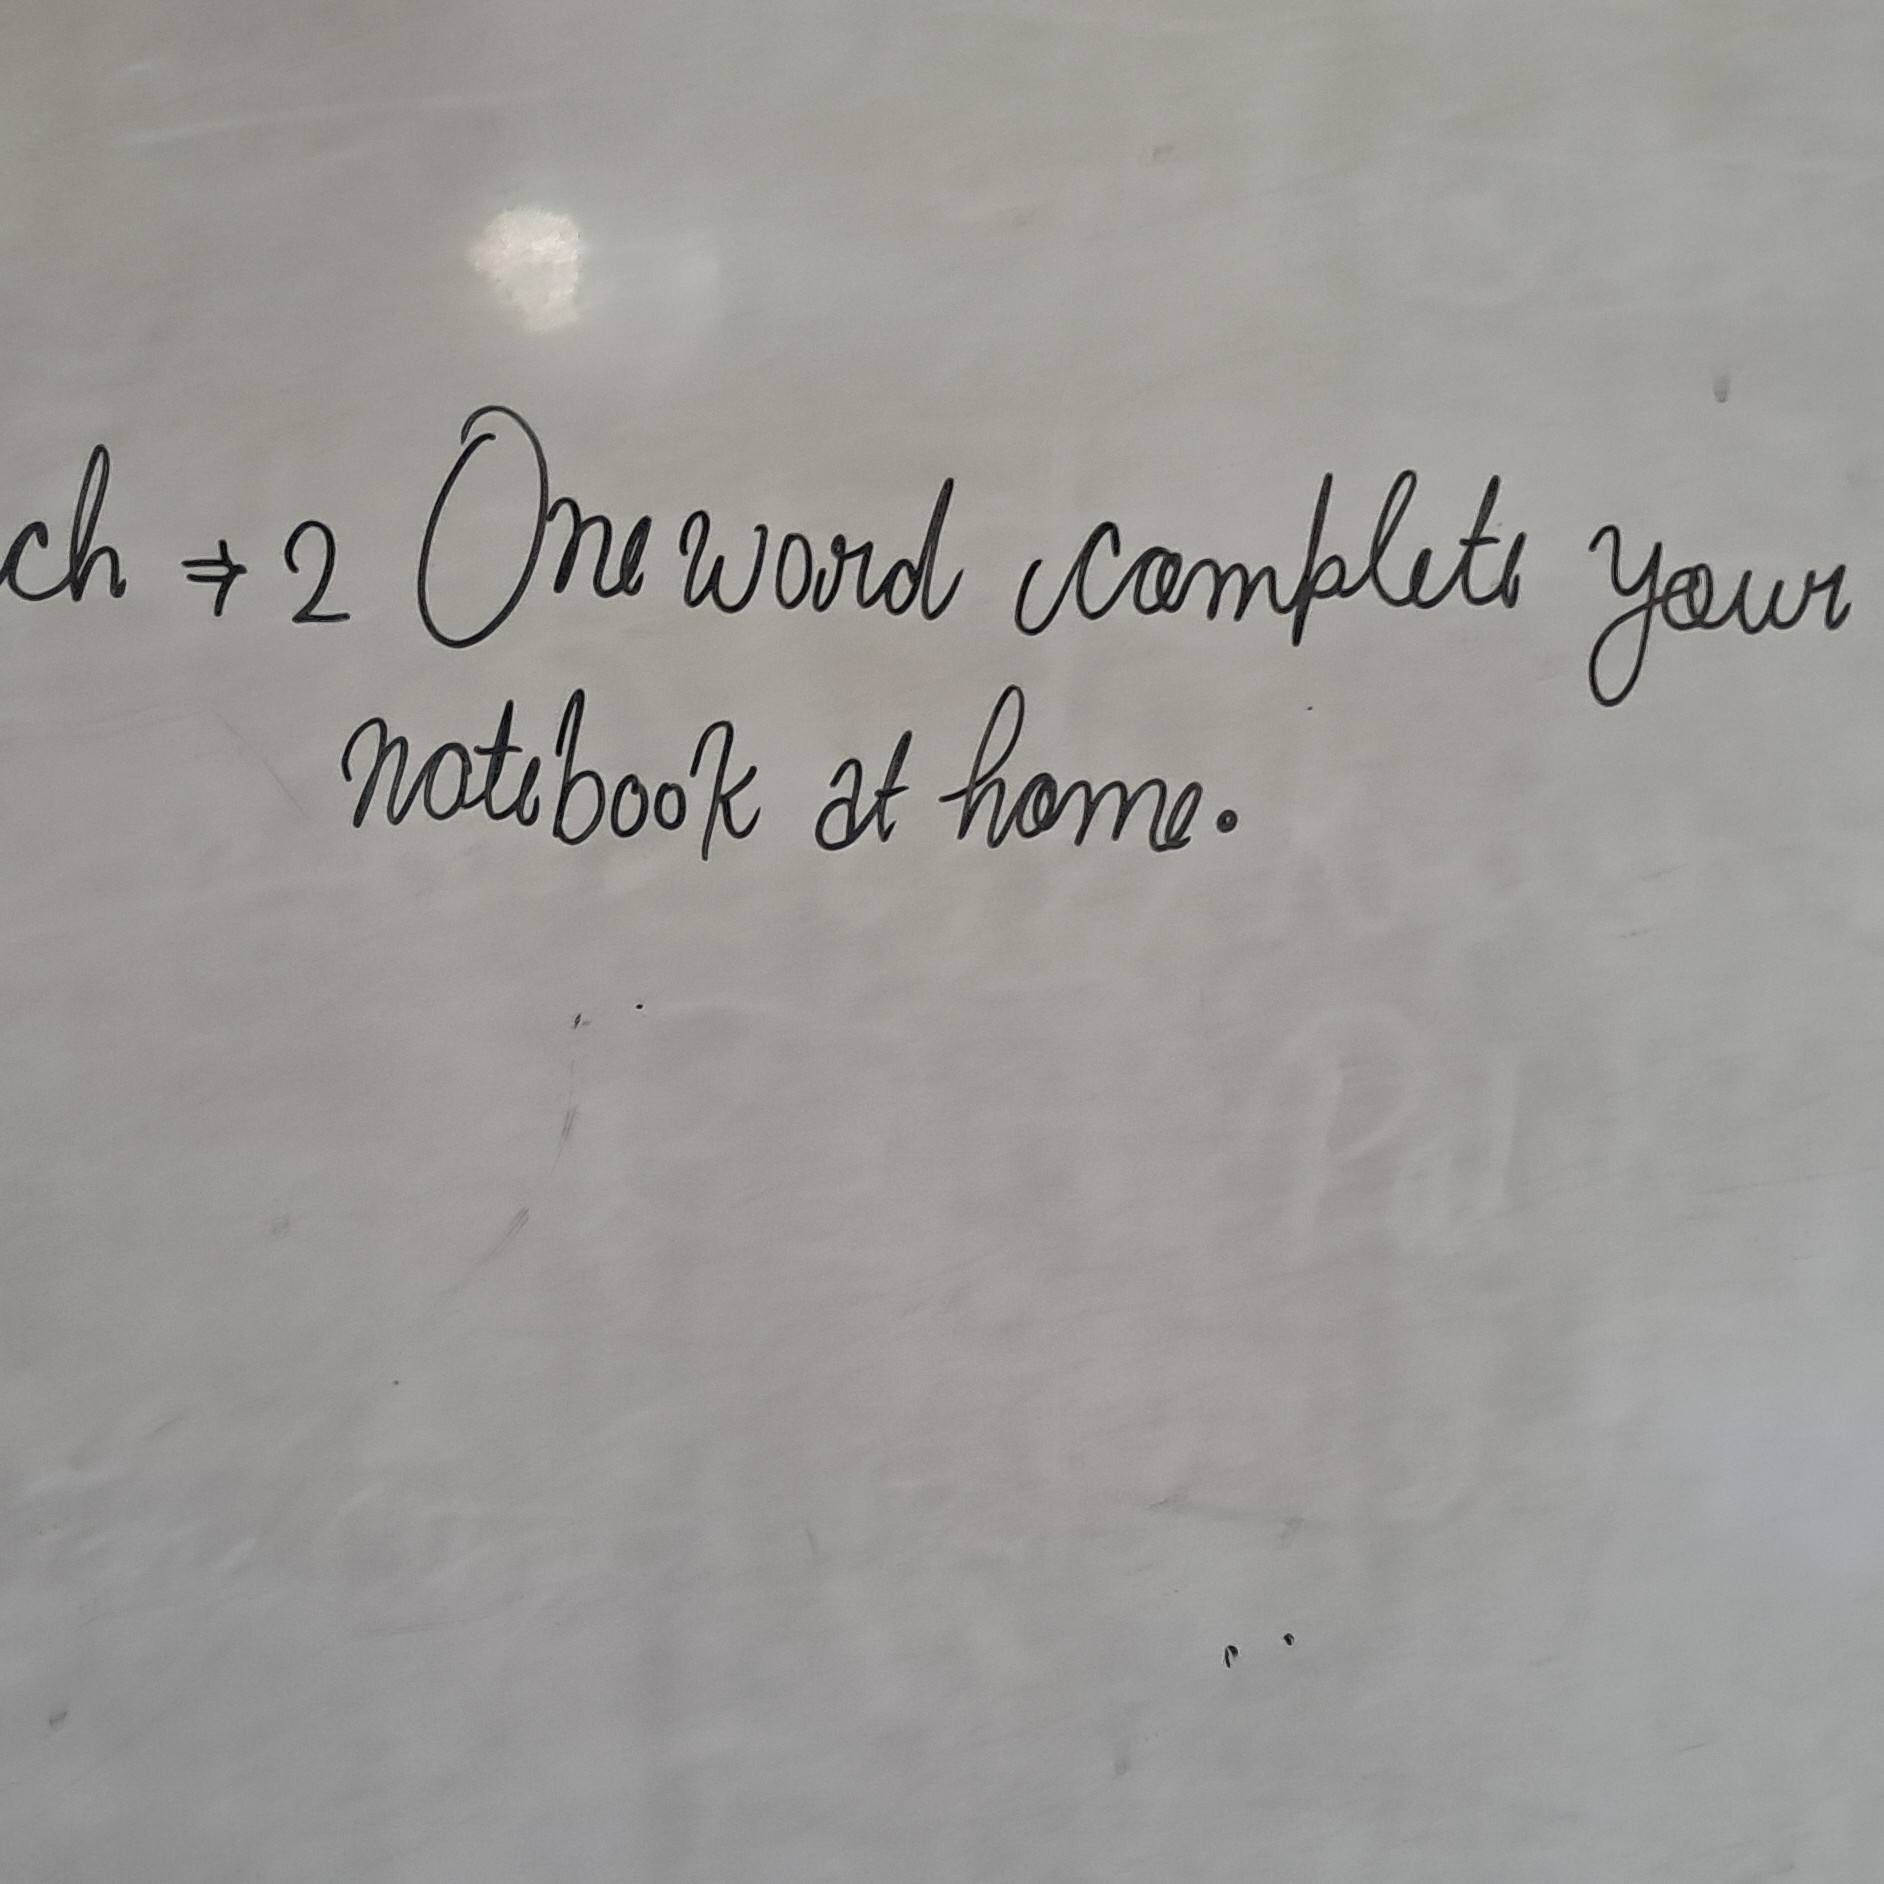 ch ⇒ 2 One word complete your
notebook at home.